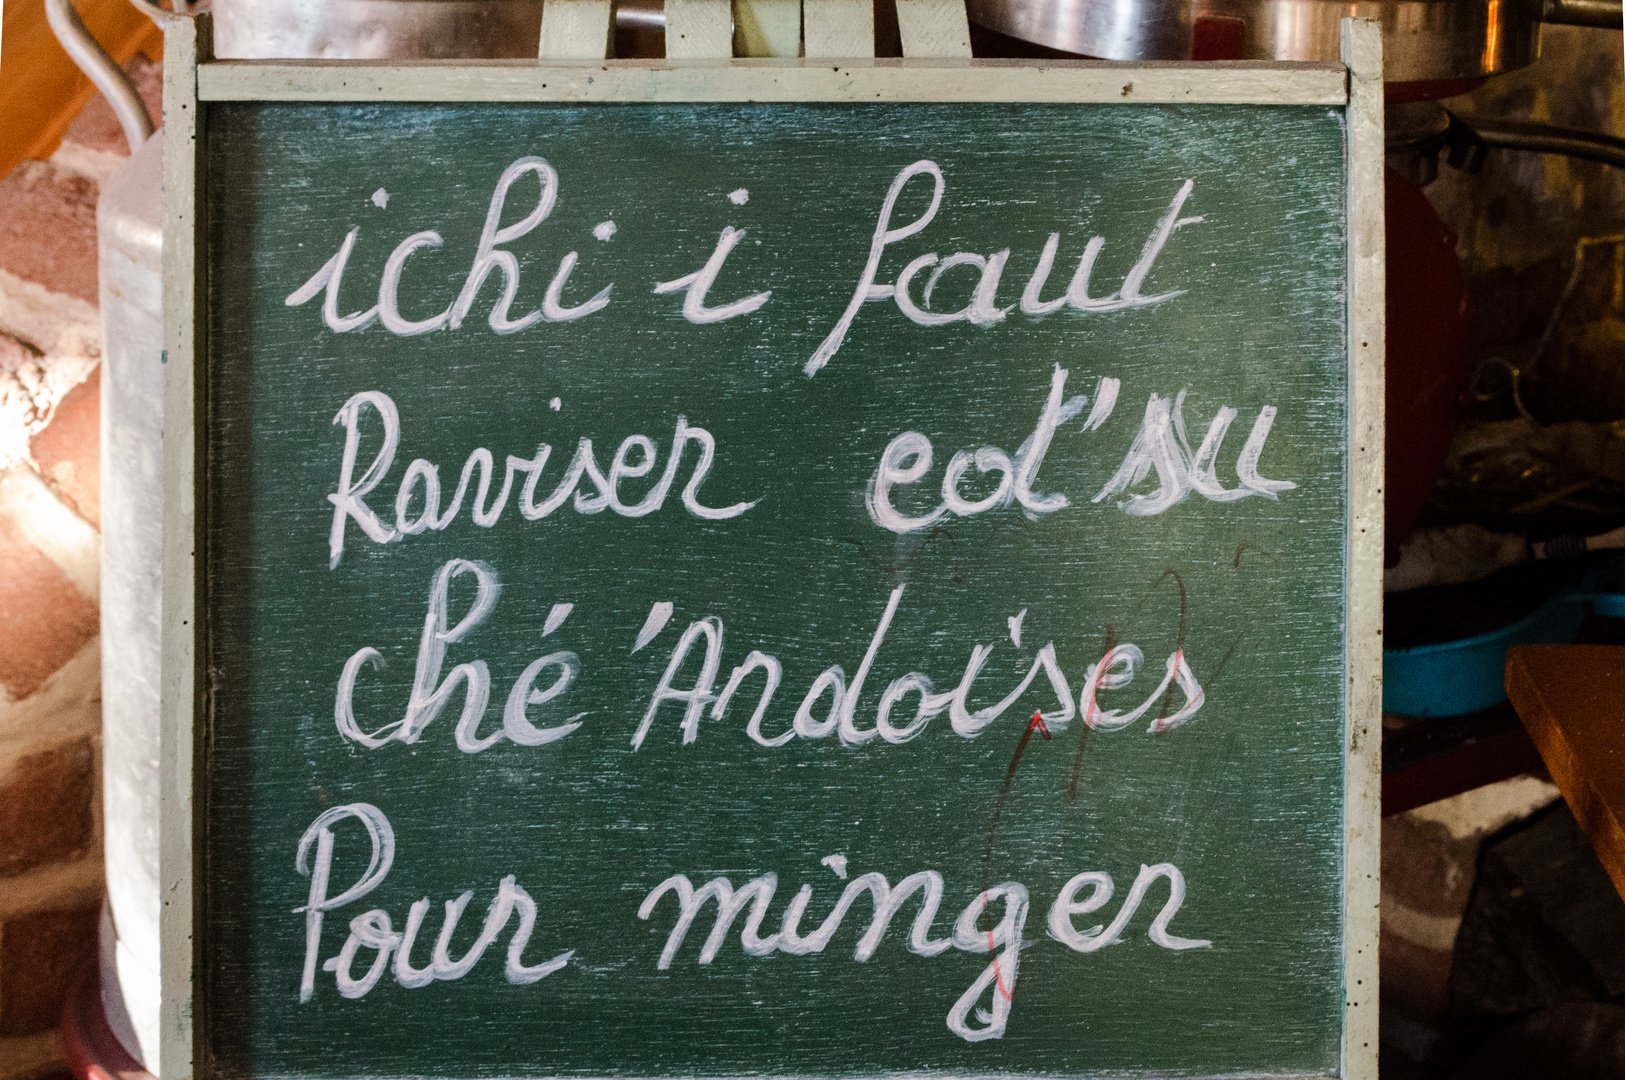 ichi i faut
Raviser eot'su
ché 'Ardoises
Pour minger